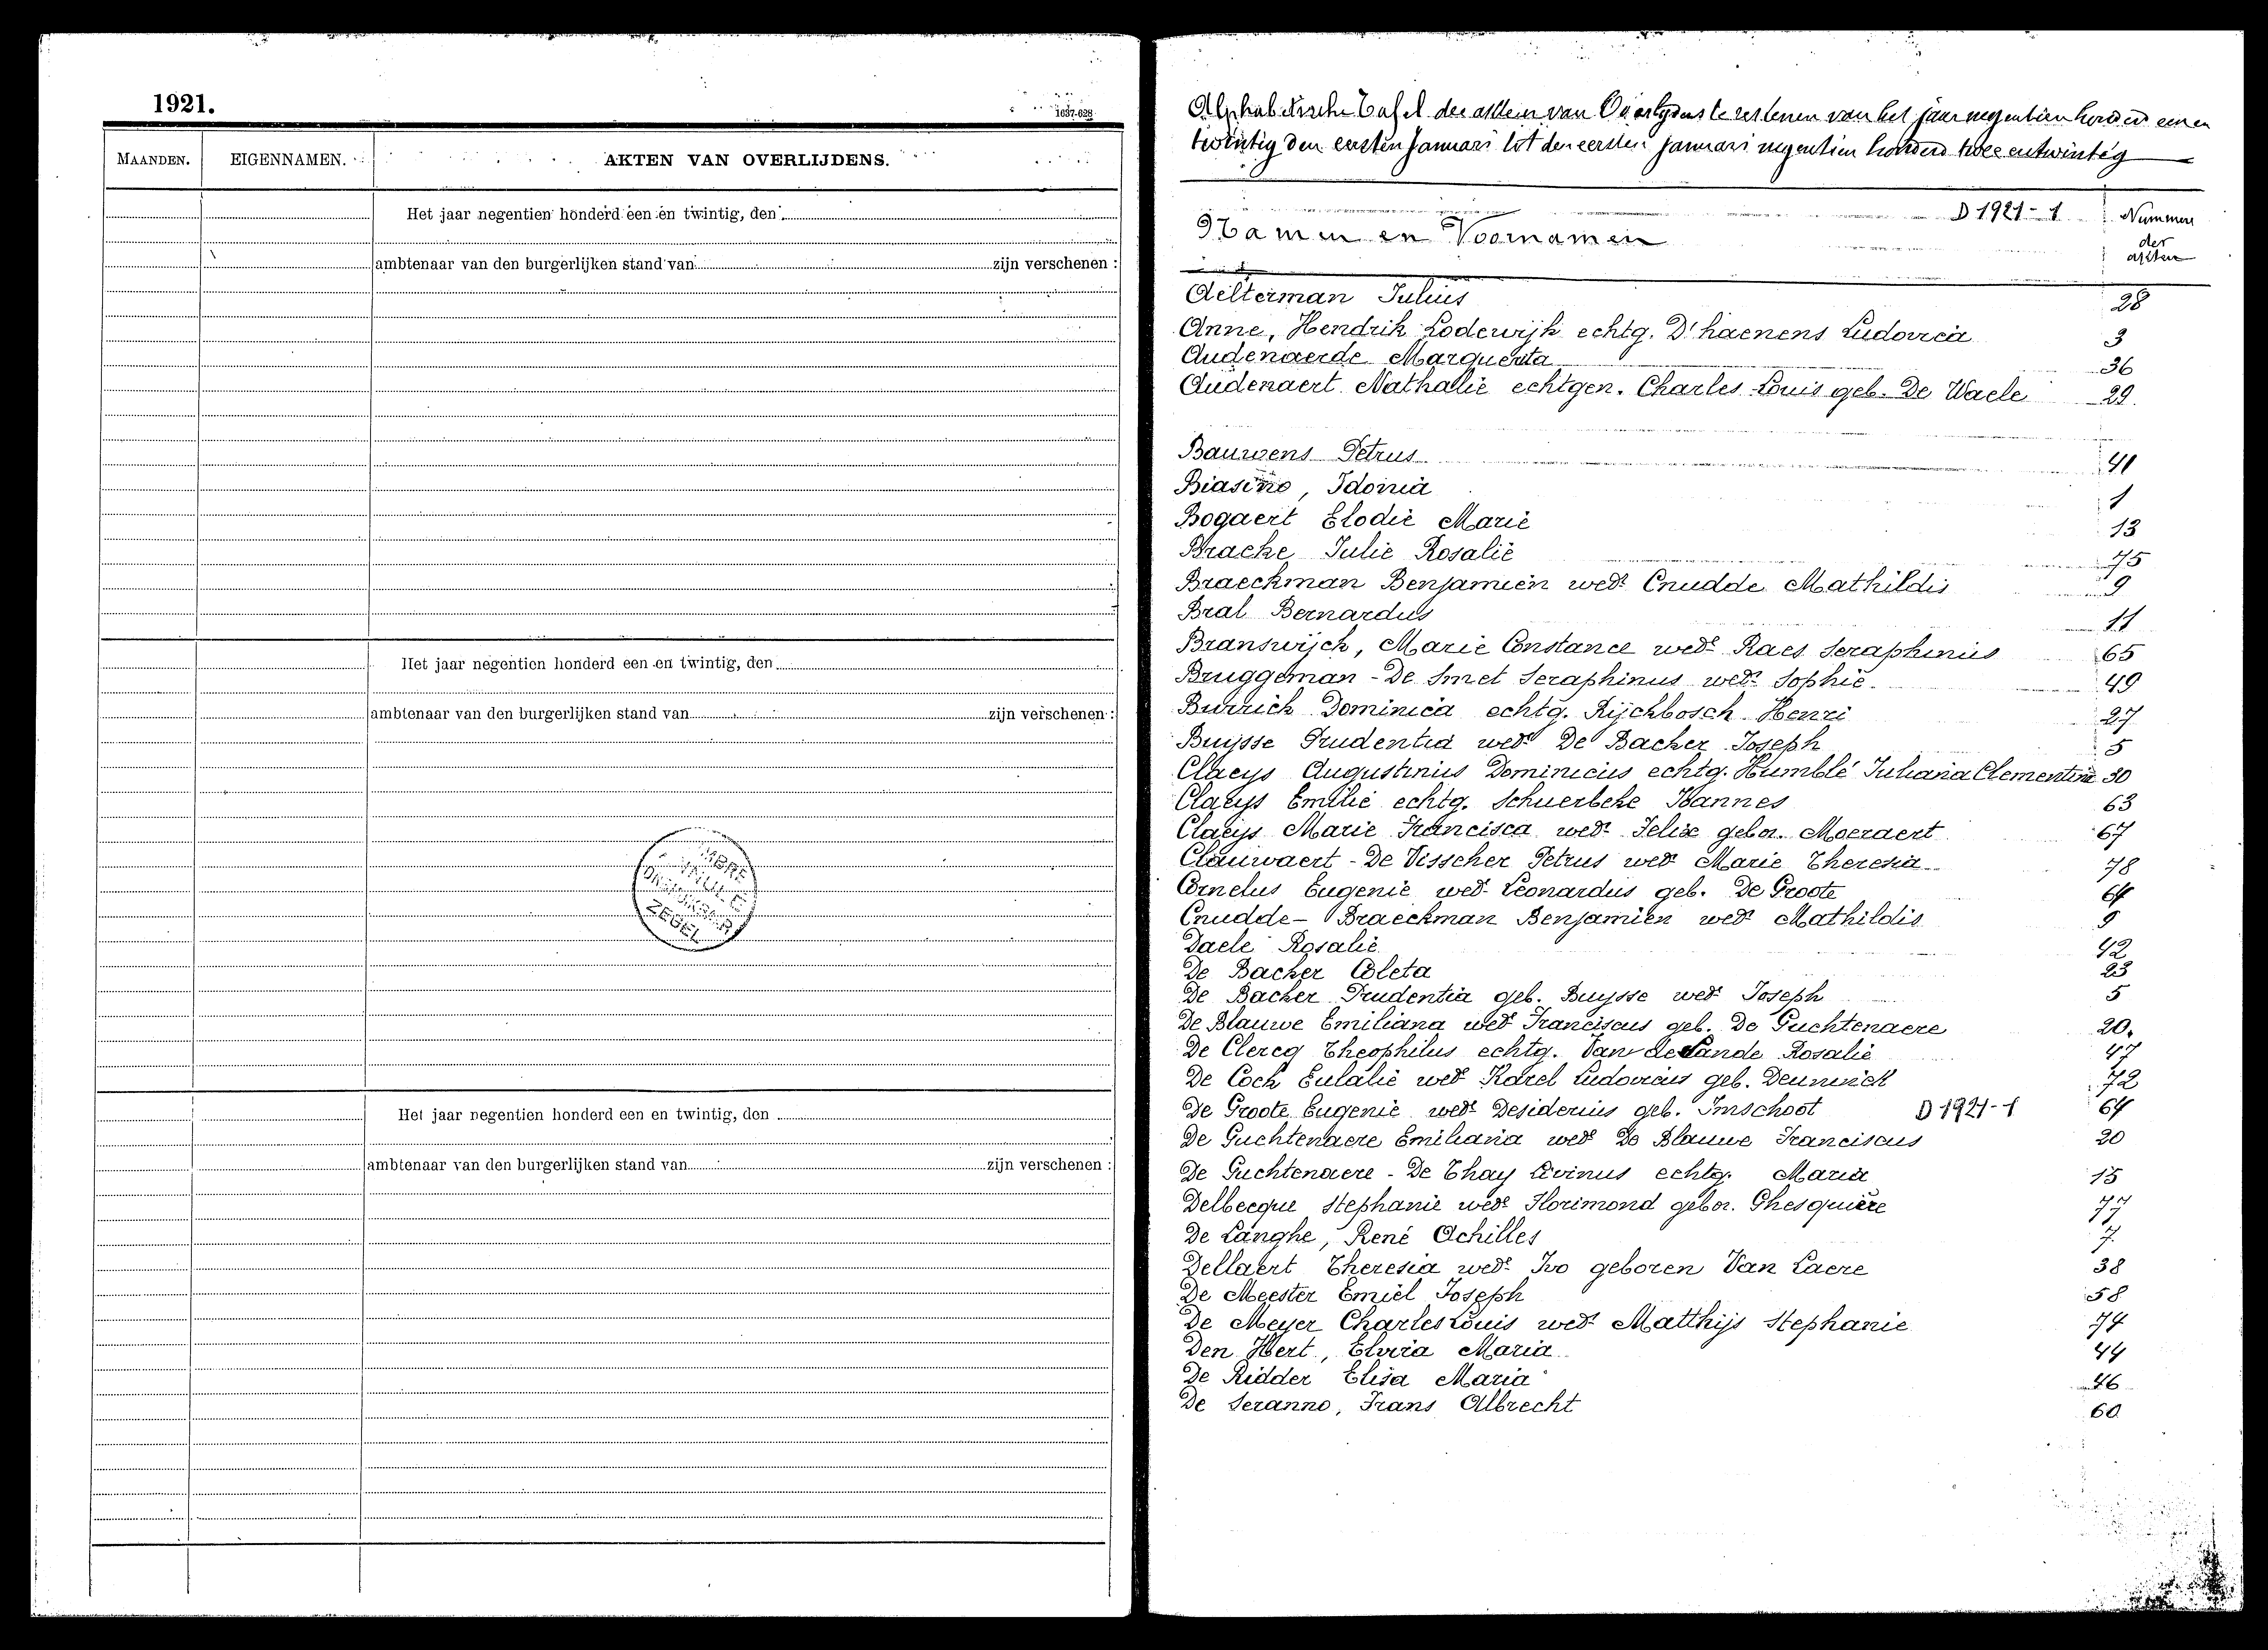 1921.
1637-628
MAANDEN.
EIGENNAMEN.
AKTEN VAN OVERLIJDENS.
Het jaar negentien honderd een en twintig, den
ambtenaar van den burgerlijken stand van zijn verschenen :
Het jaar negentien honderd een en twintig, den
ambtenaar van den burgerlijken stand van zijn verschenen :
ZEGEL
Het jaar negentien honderd een en twintig, den
ambtenaar van den burgerlijken stand van zijn verschenen :
Alphabetische Tafel der akten van Overlijdens te van het jaar negentien honderd een en
twintig den eersten Januari tot den eersten Januari negentien honderd twee en twintig
D 1921-1
Namen en Voornamen
Nummers
der
akten
Aelterman Julius 28
Anne, Hendrik Lodewijk echtg. D'haenens Ludovica 3
Audenaerde Marguerita 36
Audenaert Nathalie echtgen. Charles Louis geb. De Waele 29.
Bauwens Petrus 41
Biasino, Idonia 1
Bogaert Elodie Marie 13
Bracke Julie Rosalie 75
Braeckman Benjamien wedr Cnudde Mathildis 9
Bral Bernardus 11
Branswijck, Marie Constance wede Raes Seraphinus 65
Bruggeman - De Smet Seraphinus wedr Sophie 49
Burrick Dominica echtg. Rijckbosch Henri 27
Buysse Prudentia wede De Backer Joseph 5
Claeys Augustinus Dominicus echtg. Humblé Juliana Clementine 30
Claeys Emilie echtg. Schuerbeke Joannes 63
Claeijs Marie Francisca wede Felix gebor. Moeraert 67
Clauwaert - De Visscher Petrus wedr Marie Theresia 78
Cornelus Eugenie wed. Leonardus geb. De Groote 64
Cnudde - Braeckman Benjamien wedr Mathildis 9
Daele Rosalie 42
De Backer Coleta 23
De Backer Prudentia geb. Buysse wede Joseph 5
De Blauwe Emiliana wede Franciscus geb. De Guchtenaere 20.
De Clercq Theophilus echtg. Van de Lande Rosalie 47
De Cock Eulalie wede Karel Ludovicus geb. Deuninck 72
De Groote Eugenie wede Desiderius geb. Imschoot D 1921-1 64
De Guchtenaere Emiliana wede De Blauwe Franciscus 20
De Guchtenaere - De Thay Livinus echtg. Maria 15
Delbecque Stephanie wede Florimond gebor. Ghesquière 77
De Langhe, René Achilles 7
Dellaert Theresia wede Ivo geboren Van Laere 38
De Meester Emiel Joseph 58
De Meyer Charles Louis wedr Matthijs Stephanie 74
Den Hert, Elvira Maria 44
De Ridder Elisa Maria 46
De Seranno, Frans Albrecht 60